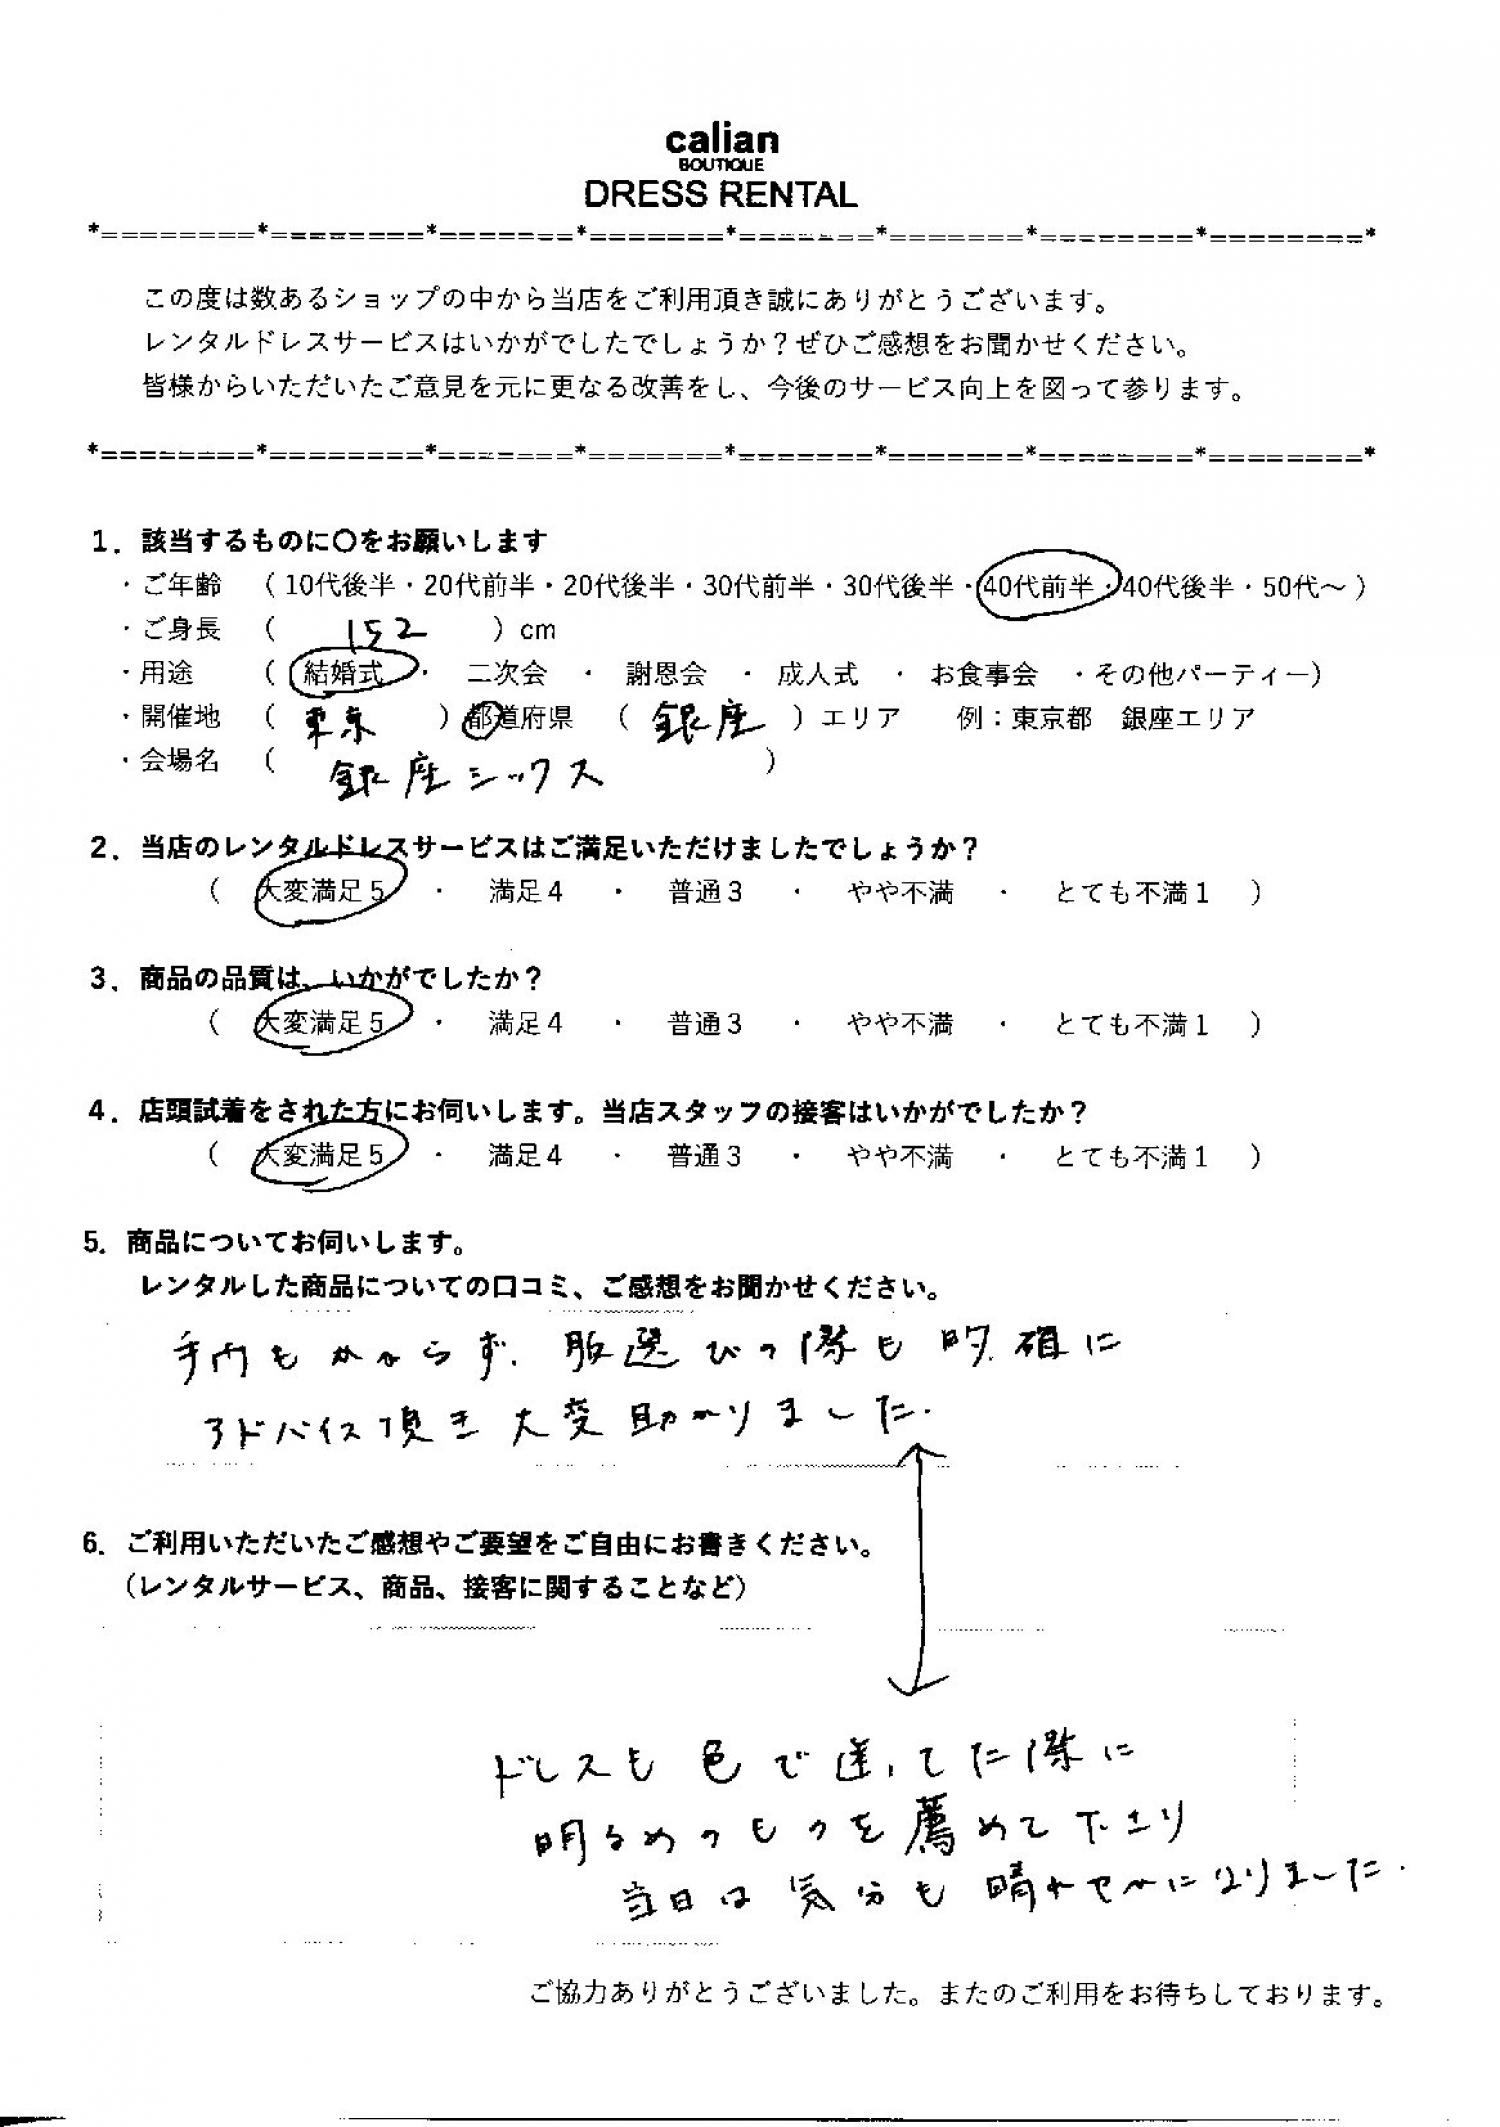 calian
BOUTIQUE
DRESS RENTAL
*========*========*=======*=======*=======*=======*========*========*
この度は数あるショップの中から当店をご利用頂き誠にありがとうございます。
レンタルドレスサービスはいかがでしたでしょうか？ぜひご感想をお聞かせください。
皆様からいただいたご意見を元に更なる改善をし、今後のサービス向上を図って参ります。
*========*========*=======*=======*=======*=======*========*========*
1．該当するものに〇をお願いします
・ご年齢 （ 10代後半・20代前半・20代後半・30代前半・30代後半・40代前半・40代後半・50代～ ）
・ご身長 （ 152 ） cm
・用途 （ 結婚式 ・ 二次会 ・ 謝恩会 ・ 成人式 ・ お食事会 ・その他パーティー）
・開催地 （ 東京 ） 都道府県 （ 銀座 ） エリア 例：東京都 銀座エリア
・会場名 （ 銀座シックス ）
2．当店のレンタルドレスサービスはご満足いただけましたでしょうか？
（ 大変満足５ ・ 満足４ ・ 普通３ ・ やや不満 ・ とても不満１ ）
3．商品の品質は、いかがでしたか？
（ 大変満足５ ・ 満足４ ・ 普通３ ・ やや不満 ・ とても不満１ ）
4．店頭試着をされた方にお伺いします。当店スタッフの接客はいかがでしたか？
（ 大変満足５ ・ 満足４ ・ 普通３ ・ やや不満 ・ とても不満１ ）
5．商品についてお伺いします。
レンタルした商品についての口コミ、ご感想をお聞かせください。
手間もかからず、服選びの際も明確に
アドバイス頂き大変助かりました。
6．ご利用いただいたご感想やご要望をご自由にお書きください。
（レンタルサービス、商品、接客に関することなど）
ドレスも色で迷ってた際に
明るめのものを薦めて下さり
当日は気分も晴れやかになりました。
ご協力ありがとうございました。またのご利用をお待ちしております。